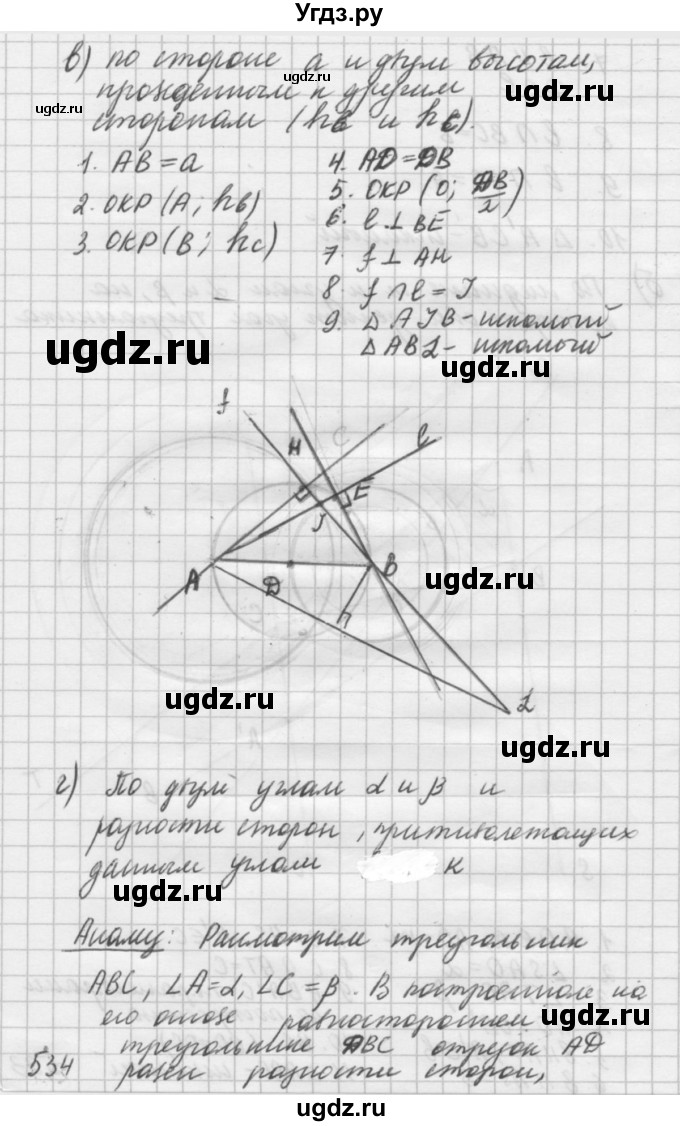 Угдз.ру
в) по стороне а и двум высотам,
проведенным к другим
сторонам (hв и hс).
1. AB = a
2. окр (A; hв)
3. окр (B; hc)
4. AD = DB
5. окр (O; AB/2)
6. l ⊥ BE
7. f ⊥ AH
8. f ∩ l = J
9. Δ AJB - искомый
Δ ABL - искомый
ugdz.ru
ugdz.ru
ugdz.ru
ugdz.ru
ugdz.ru
f
H
C
E
J
A
D
B
L
ugdz.ru
ugdz.ru
ugdz.ru
г) По двум углам α и β и
разности сторон, противолежащих
данным углам к
ugdz.ru
Анализ: Рассмотрим треугольник
ABC, ∠A = α, ∠C = β. В построенном на
его основе равностороннем
ugdz.ru
треугольнике DBC отрезок AD
534 равен разности сторон,
ugdz.ru
ugdz.ru